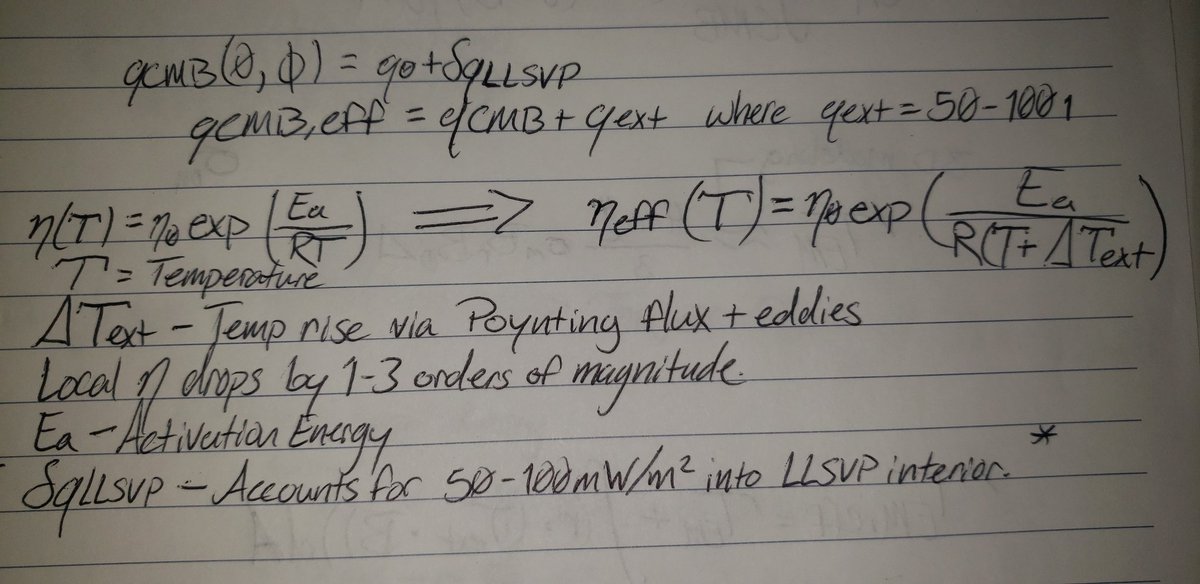 qCMB(θ, Φ) = q0 + δqLLSVP
qCMB,eff = qCMB + qext where qext = 50-100
η(T) = η0 exp (Ea/RT) ⟹ ηeff (T) = η0 exp (Ea/R(T+ΔText))
T = Temperature
ΔText - Temp rise via Poynting flux + eddies
Local η drops by 1-3 orders of magnitude.
Ea - Activation Energy
δqLLSVP - Accounts for 50-100mW/m² into LLSVP interior. *